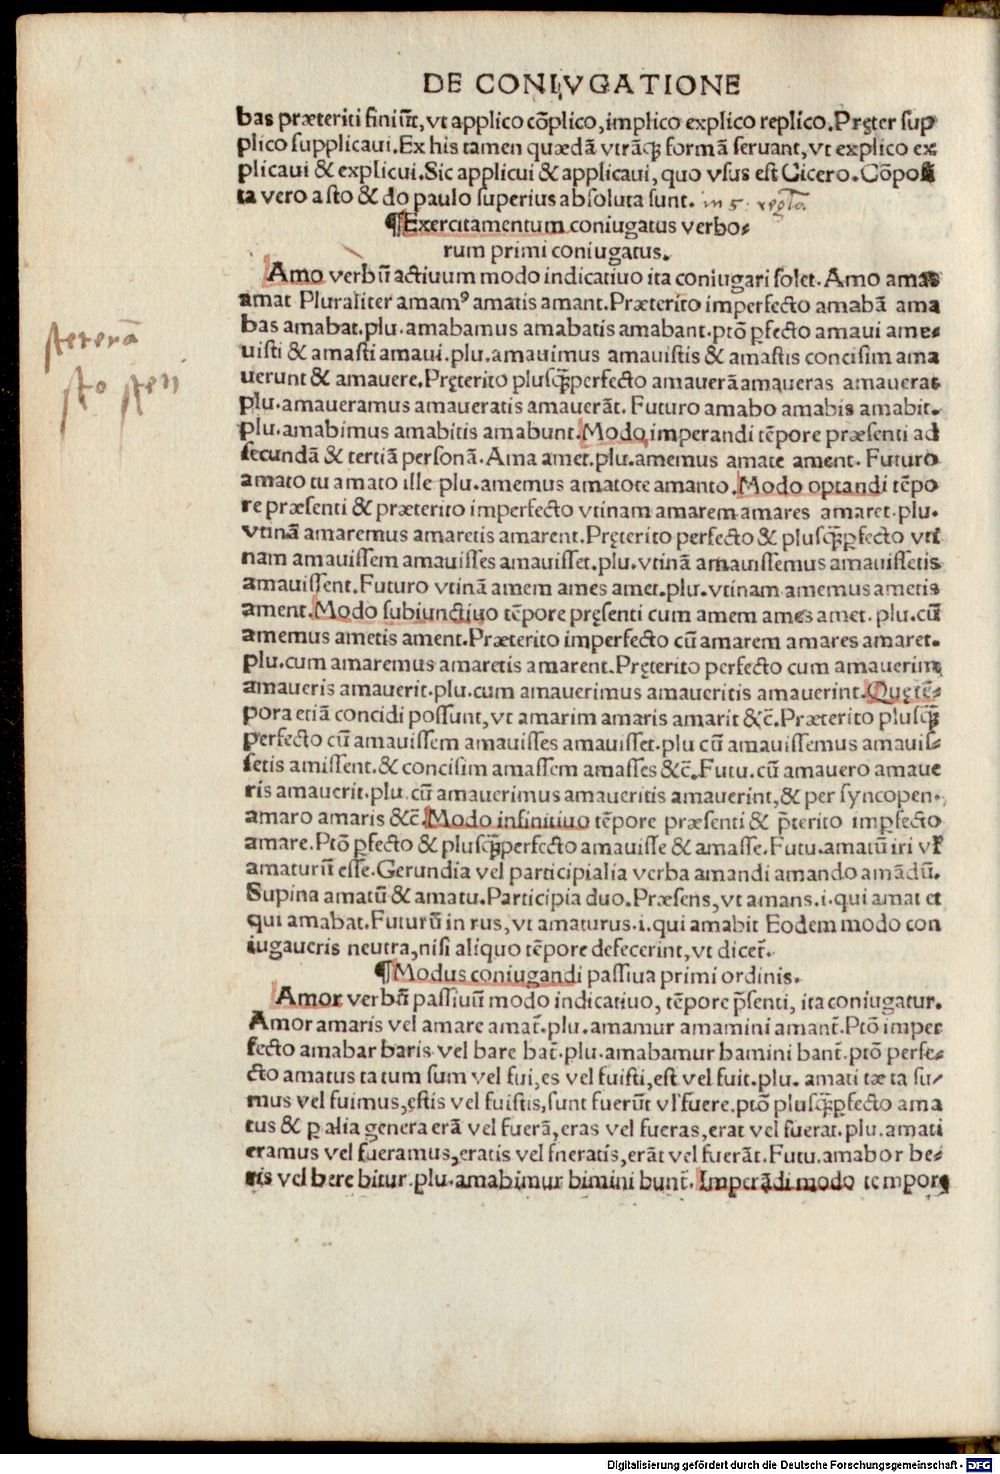 DE CONIVGATIONE
bas præteriti finiūt, vt applico cōplico, implico explico replico. Pręter sup
plico supplicaui. Ex his tamen quædā vtrāq̃ formā seruant, vt explico ex
plicaui & explicui. Sic applicui & applicaui, quo vsus est Cicero. Cōposi
ta vero a sto & do paulo superius absoluta sunt. in 5.
¶Exercitamentum coniugatus verbo-
rum primi coniugatus.
Amo verbū actiuum modo indicatiuo ita coniugari solet. Amo amas
amat Pluraliter amamꝰ amatis amant. Præterito imperfecto amabā ama
bas amabat. plu. amabamus amabatis amabant. ptō ꝑfecto amaui ame-
uisti & amasti amaui. plu. amauimus amauistis & amastis concisim ama
uerunt & amauere. Pręterito plusq̃perfecto amauerā amaueras amauerat
plu. amaueramus amaueratis amauerāt. Futuro amabo amabis amabit.
plu. amabimus amabitis amabunt. Modo imperandi tēpore præsenti ad
secundā & tertiā personā. Ama amet. plu. amemus amate ament. Futuro
amato tu amato ille plu. amemus amatote amanto. Modo optandi tēpo
re præsenti & præterito imperfecto vtinam amarem amares amaret. plu.
vtinā amaremus amaretis amarent. Pręterito perfecto & plusq̃ꝑfecto vti
nam amauissem amauisses amauisset. plu. vtinā amauissemus amauissetis
amauissent. Futuro vtinā amem ames amet. plu. vtinam amemus ametis
ament. Modo subiunctiuo tēpore pręsenti cum amem ames amet. plu. cū
amemus ametis ament. Præterito imperfecto cū amarem amares amaret.
plu. cum amaremus amaretis amarent. Pręterito perfecto cum amauerim
amaueris amauerit. plu. cum amauerimus amaueritis amauerint. Quę tē-
pora etiā concidi possunt, vt amarim amaris amarit &c̄. Præterito plusq̃
perfecto cū amauissem amauisses amauisset. plu cū amauissemus amauis-
setis amissent. & concisim amassem amasses &c̄. Futu. cū amauero amaue
ris amauerit. plu. cū amauerimus amaueritis amauerint, & per syncopen.
amaro amaris &c̄. Modo infinitiuo tēpore præsenti & p̄terito imꝑfecto
amare. Ptō ꝑfecto & plusq̃perfecto amauisse & amasse. Futu. amatū iri vl̄
amaturū esse. Gerundia vel participialia verba amandi amando amādū.
Supina amatū & amatu. Participia duo. Præsens, vt amans. i. qui amat et
qui amabat. Futurū in rus, vt amaturus. i. qui amabit Eodem modo con
iugaueris neutra, nisi aliquo tēpore defecerint, vt dicet̄.
¶Modus coniugandi passiua primi ordinis.
Amor verbū passiuū modo indicatiuo, tēpore p̄senti, ita coniugatur.
Amor amaris vel amare amat̄. plu. amamur amamini amant̄. Ptō imper
fecto amabar baris vel bare bat̄. plu. amabamur bamini bant̄. ptō perfe-
cto amatus ta tum sum vel fui, es vel fuisti, est vel fuit. plu. amati tæ ta su-
mus vel fuimus, estis vel fuistis, sunt fuerūt vl̄ fuere. ptō plusq̃ꝑfecto ama
tus & ꝑ alia genera erā vel fuerā, eras vel fueras, erat vel fuerat. plu. amati
eramus vel fueramus, eratis vel fneratis, erāt vel fuerāt. Futu. amabor be-
ris vel bere bitur. plu. amabimur bimini bunt̄. Imperādi modo tempore
steterā
sto steti
Digitalisierung gefördert durch die Deutsche Forschungsgemeinschaft - DFG